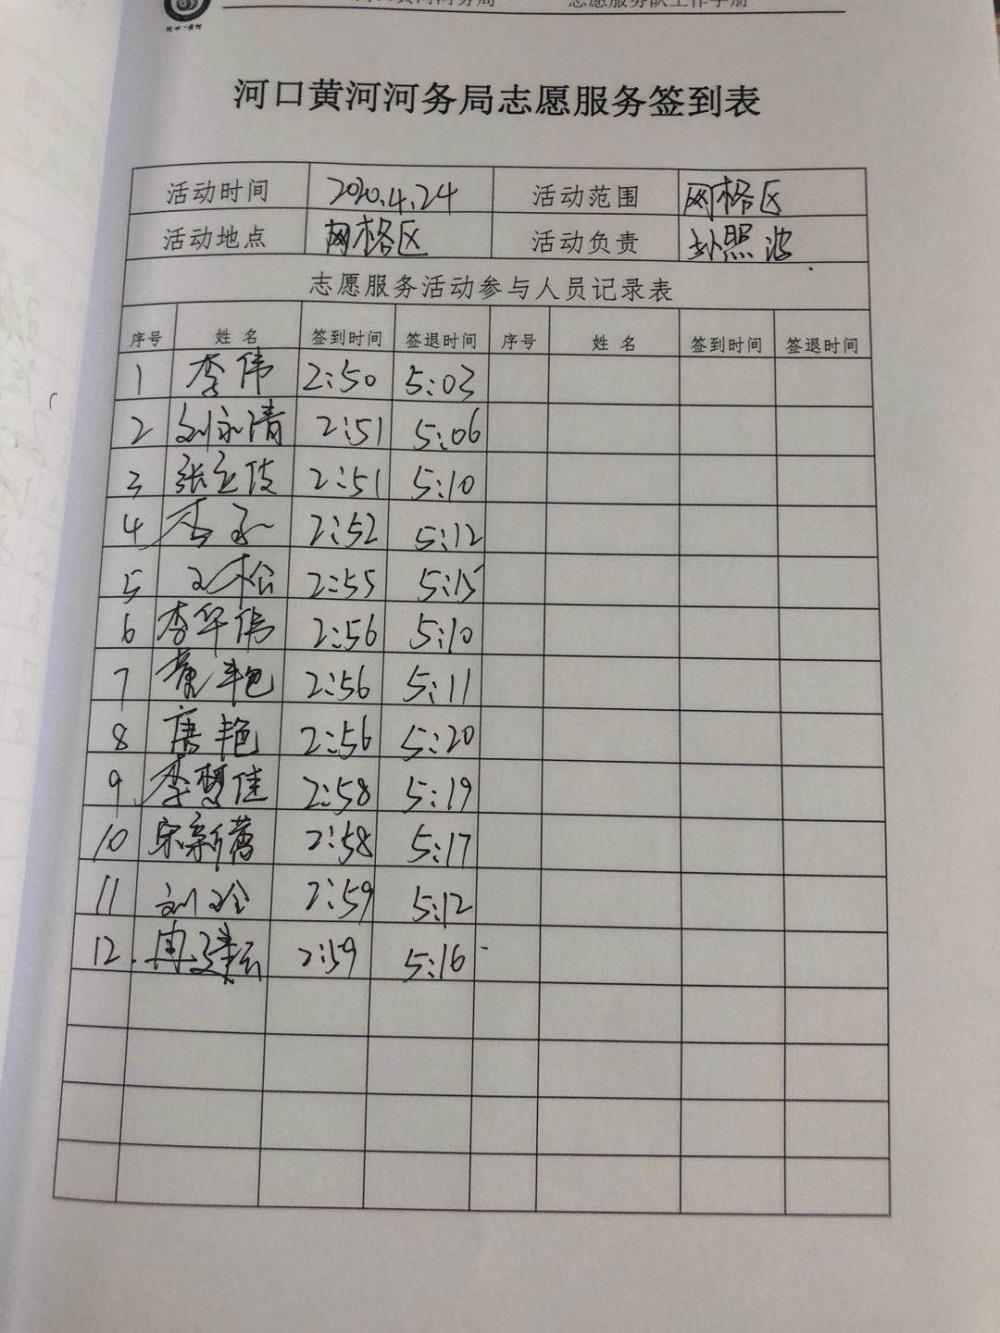 河口黄河河务局 志愿服务队工作手册
河口·黄河
河口黄河河务局志愿服务签到表
活动时间 2020.4.24 活动范围 网格区
活动地点 网格区 活动负责 孙照波
志愿服务活动参与人员记录表
序号 姓名 签到时间 签退时间 序号 姓名 签到时间 签退时间
1 李伟 2:50 5:03
2 刘永清 2:51 5:06
3 张 2:51 5:10
4 李 2:52 5:12
5 王松 2:55 5:15
6 李华伟 2:56 5:10
7 黄艳 2:56 5:11
8 唐艳 2:56 5:20
9 李梦佳 2:58 5:19
10 宋新蕾 2:58 5:17
11 刘玲 2:59 5:12
12. 冉建云 2:59 5:16